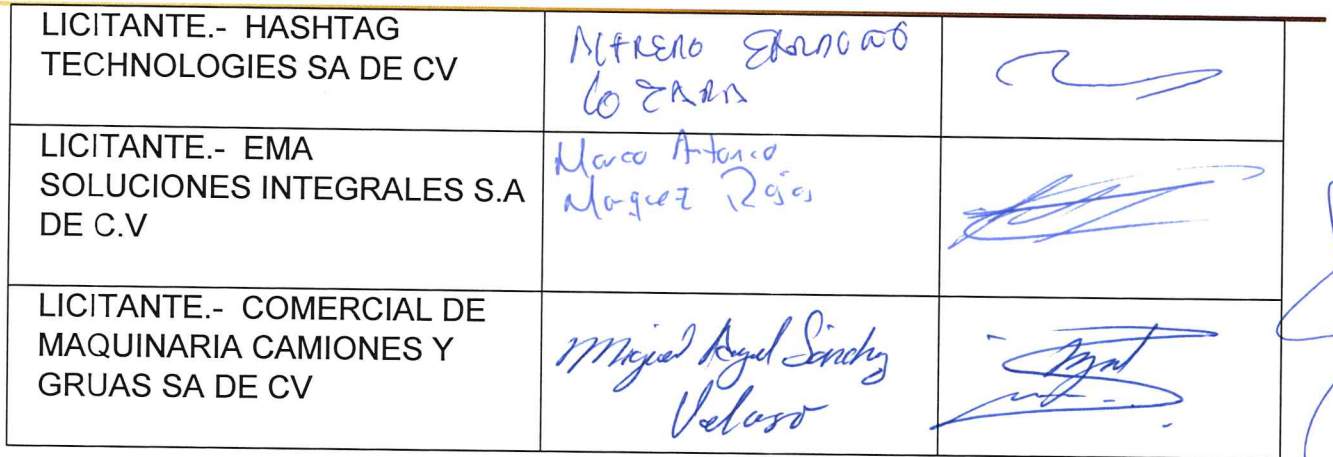 LICITANTE.- HASHTAG
TECHNOLOGIES SA DE CV
LICITANTE.- EMA
SOLUCIONES INTEGRALES S.A
DE C.V
Marco Antonio
Marquez Rojas
LICITANTE.- COMERCIAL DE
MAQUINARIA CAMIONES Y
GRUAS SA DE CV
Miguel Angel Sánchez
Velasco